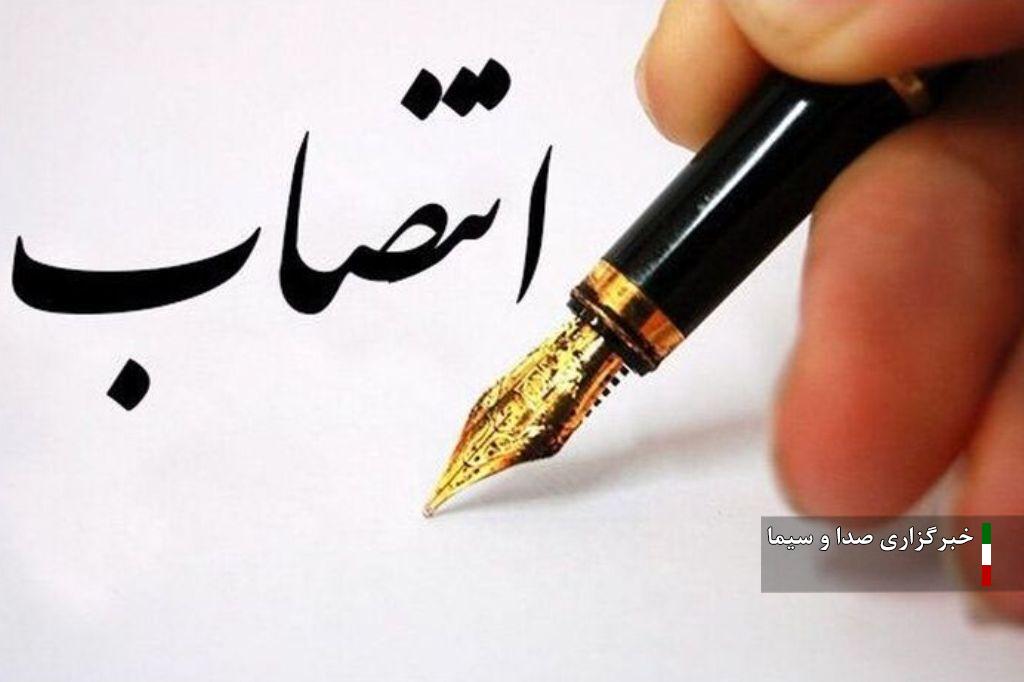 انتصاب
خبرگزاری صدا و سیما